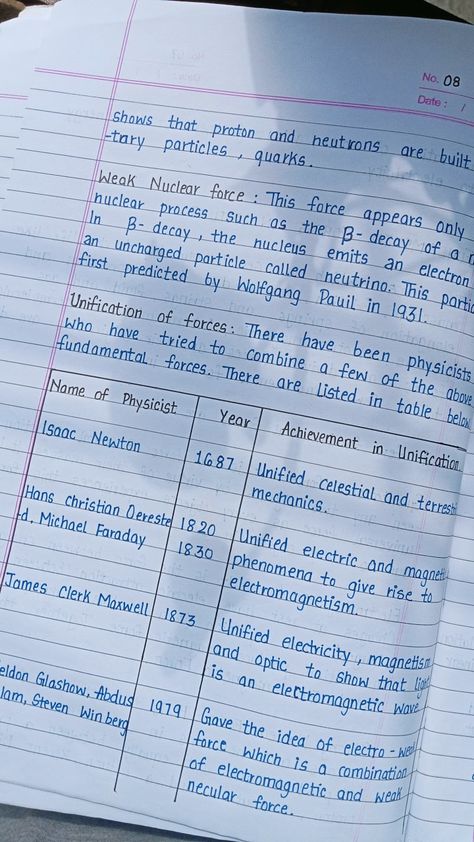 No. 08
Date : /
shows that proton and neutrons are built
-tary particles, quarks.
Weak Nuclear force : This force appears only
nuclear process such as the β-decay of a
In β-decay, the nucleus emits an electron
an uncharged particle called neutrino. This partic
first predicted by Wolfgang Pauil in 1931.
Unification of forces: There have been physicists
who have tried to combine a few of the above
fundamental forces. There are listed in table below
Name of Physicist Year Achievement in Unification
Isaac Newton 1687 Unified celestial and terrest
mechanics.
Hans christian Oereste 1820 Unified electric and magnet
-d, Michael Faraday 1830 phenomena to give rise to
electromagnetism.
James Clerk Maxwell 1873 Unified electricity, magnetism
and optic to show that light
is an electromagnetic wave
eldon Glashow, Abdus 1979 Gave the idea of electro-weak
lam, Steven Winberg force which is a combination
of electromagnetic and weak
necular force.